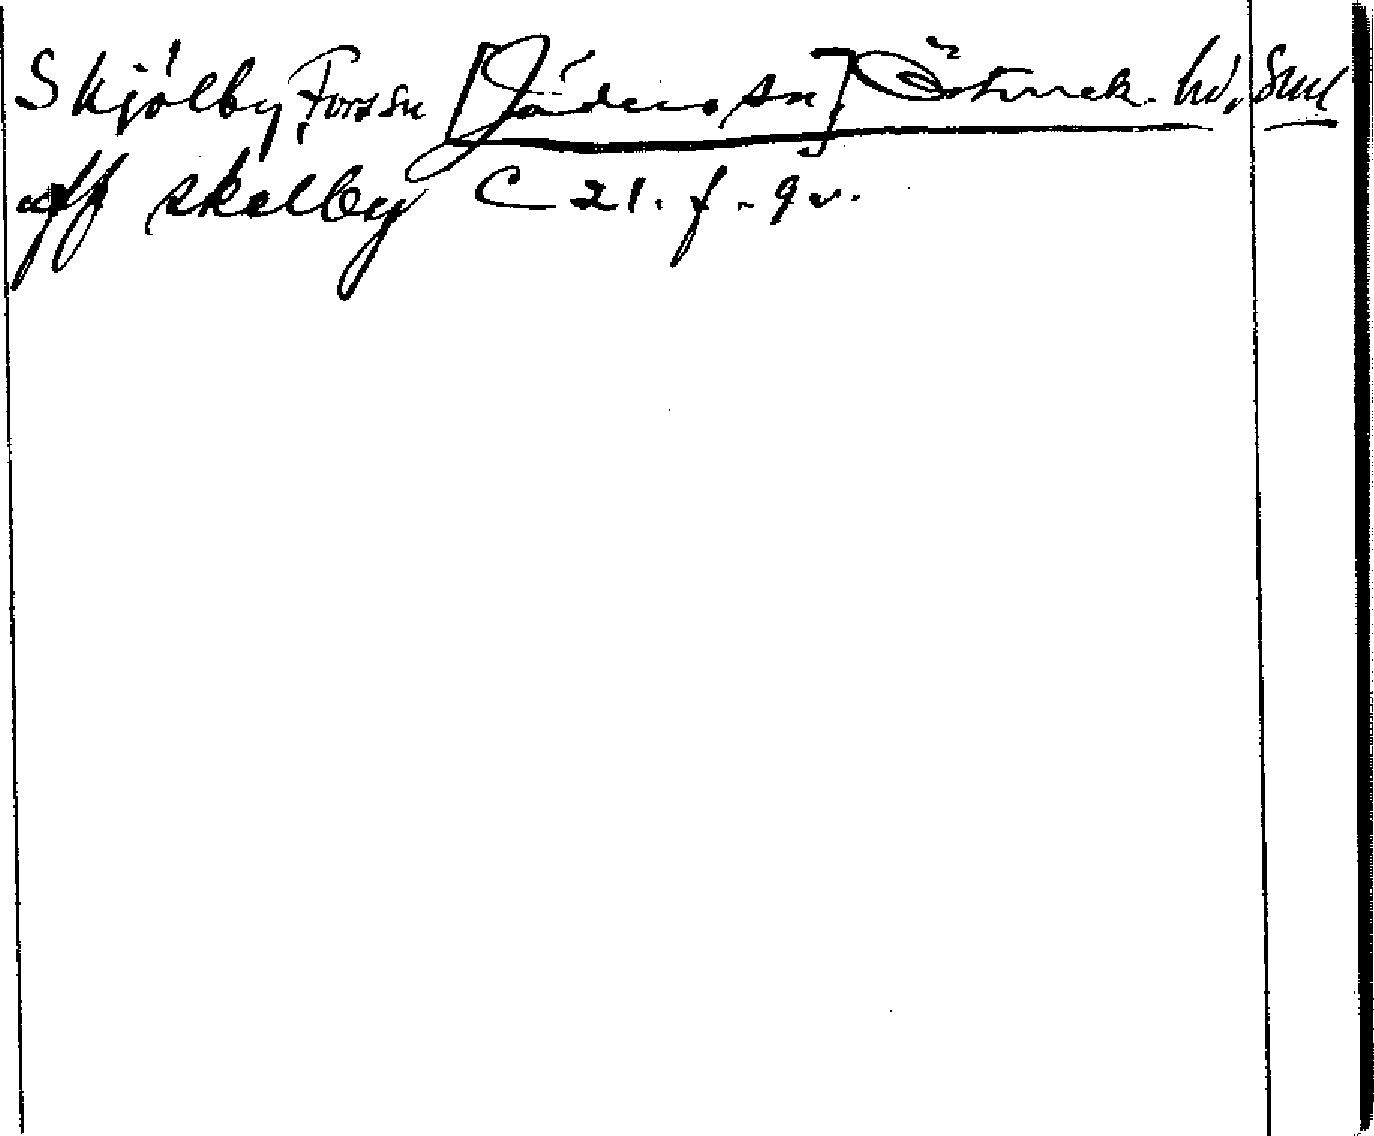 Skjólby, Forssa sn [Jäders sn] Österrek. hd, Sml
aff skelby C 21. f. 9 v.